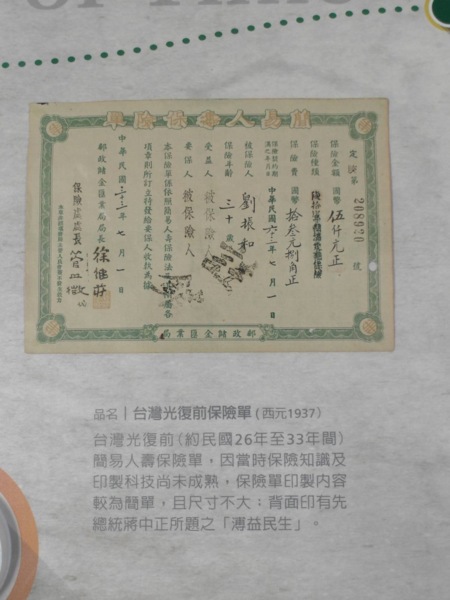 of Time
單險保壽人易簡
定演第 208930 號
保險金額 國幣伍仟元正
保險種類
保險費 國幣拾叁元捌角正
保險契約期滿之年月日 中華民國六三年七月一日
被保險人 劉振和
保險年齡 三十歲
受益人 被保險人
要保人 被保險人
本保險單係依照簡易人壽保險法
項章則所訂立特發給要保人收執為據
中華民國三十三年七月一日
郵政儲金匯業局局長 徐繼莊
保險處處長
局業匯金儲政郵
品名|台灣光復前保險單(西元1937)
台灣光復前(約民國26年至33年間)
簡易人壽保險單,因當時保險知識及
印製科技尚未成熟,保險單印製內容
較為簡單,且尺寸不大;背面印有先
總統蔣中正所題之「溥益民生」。